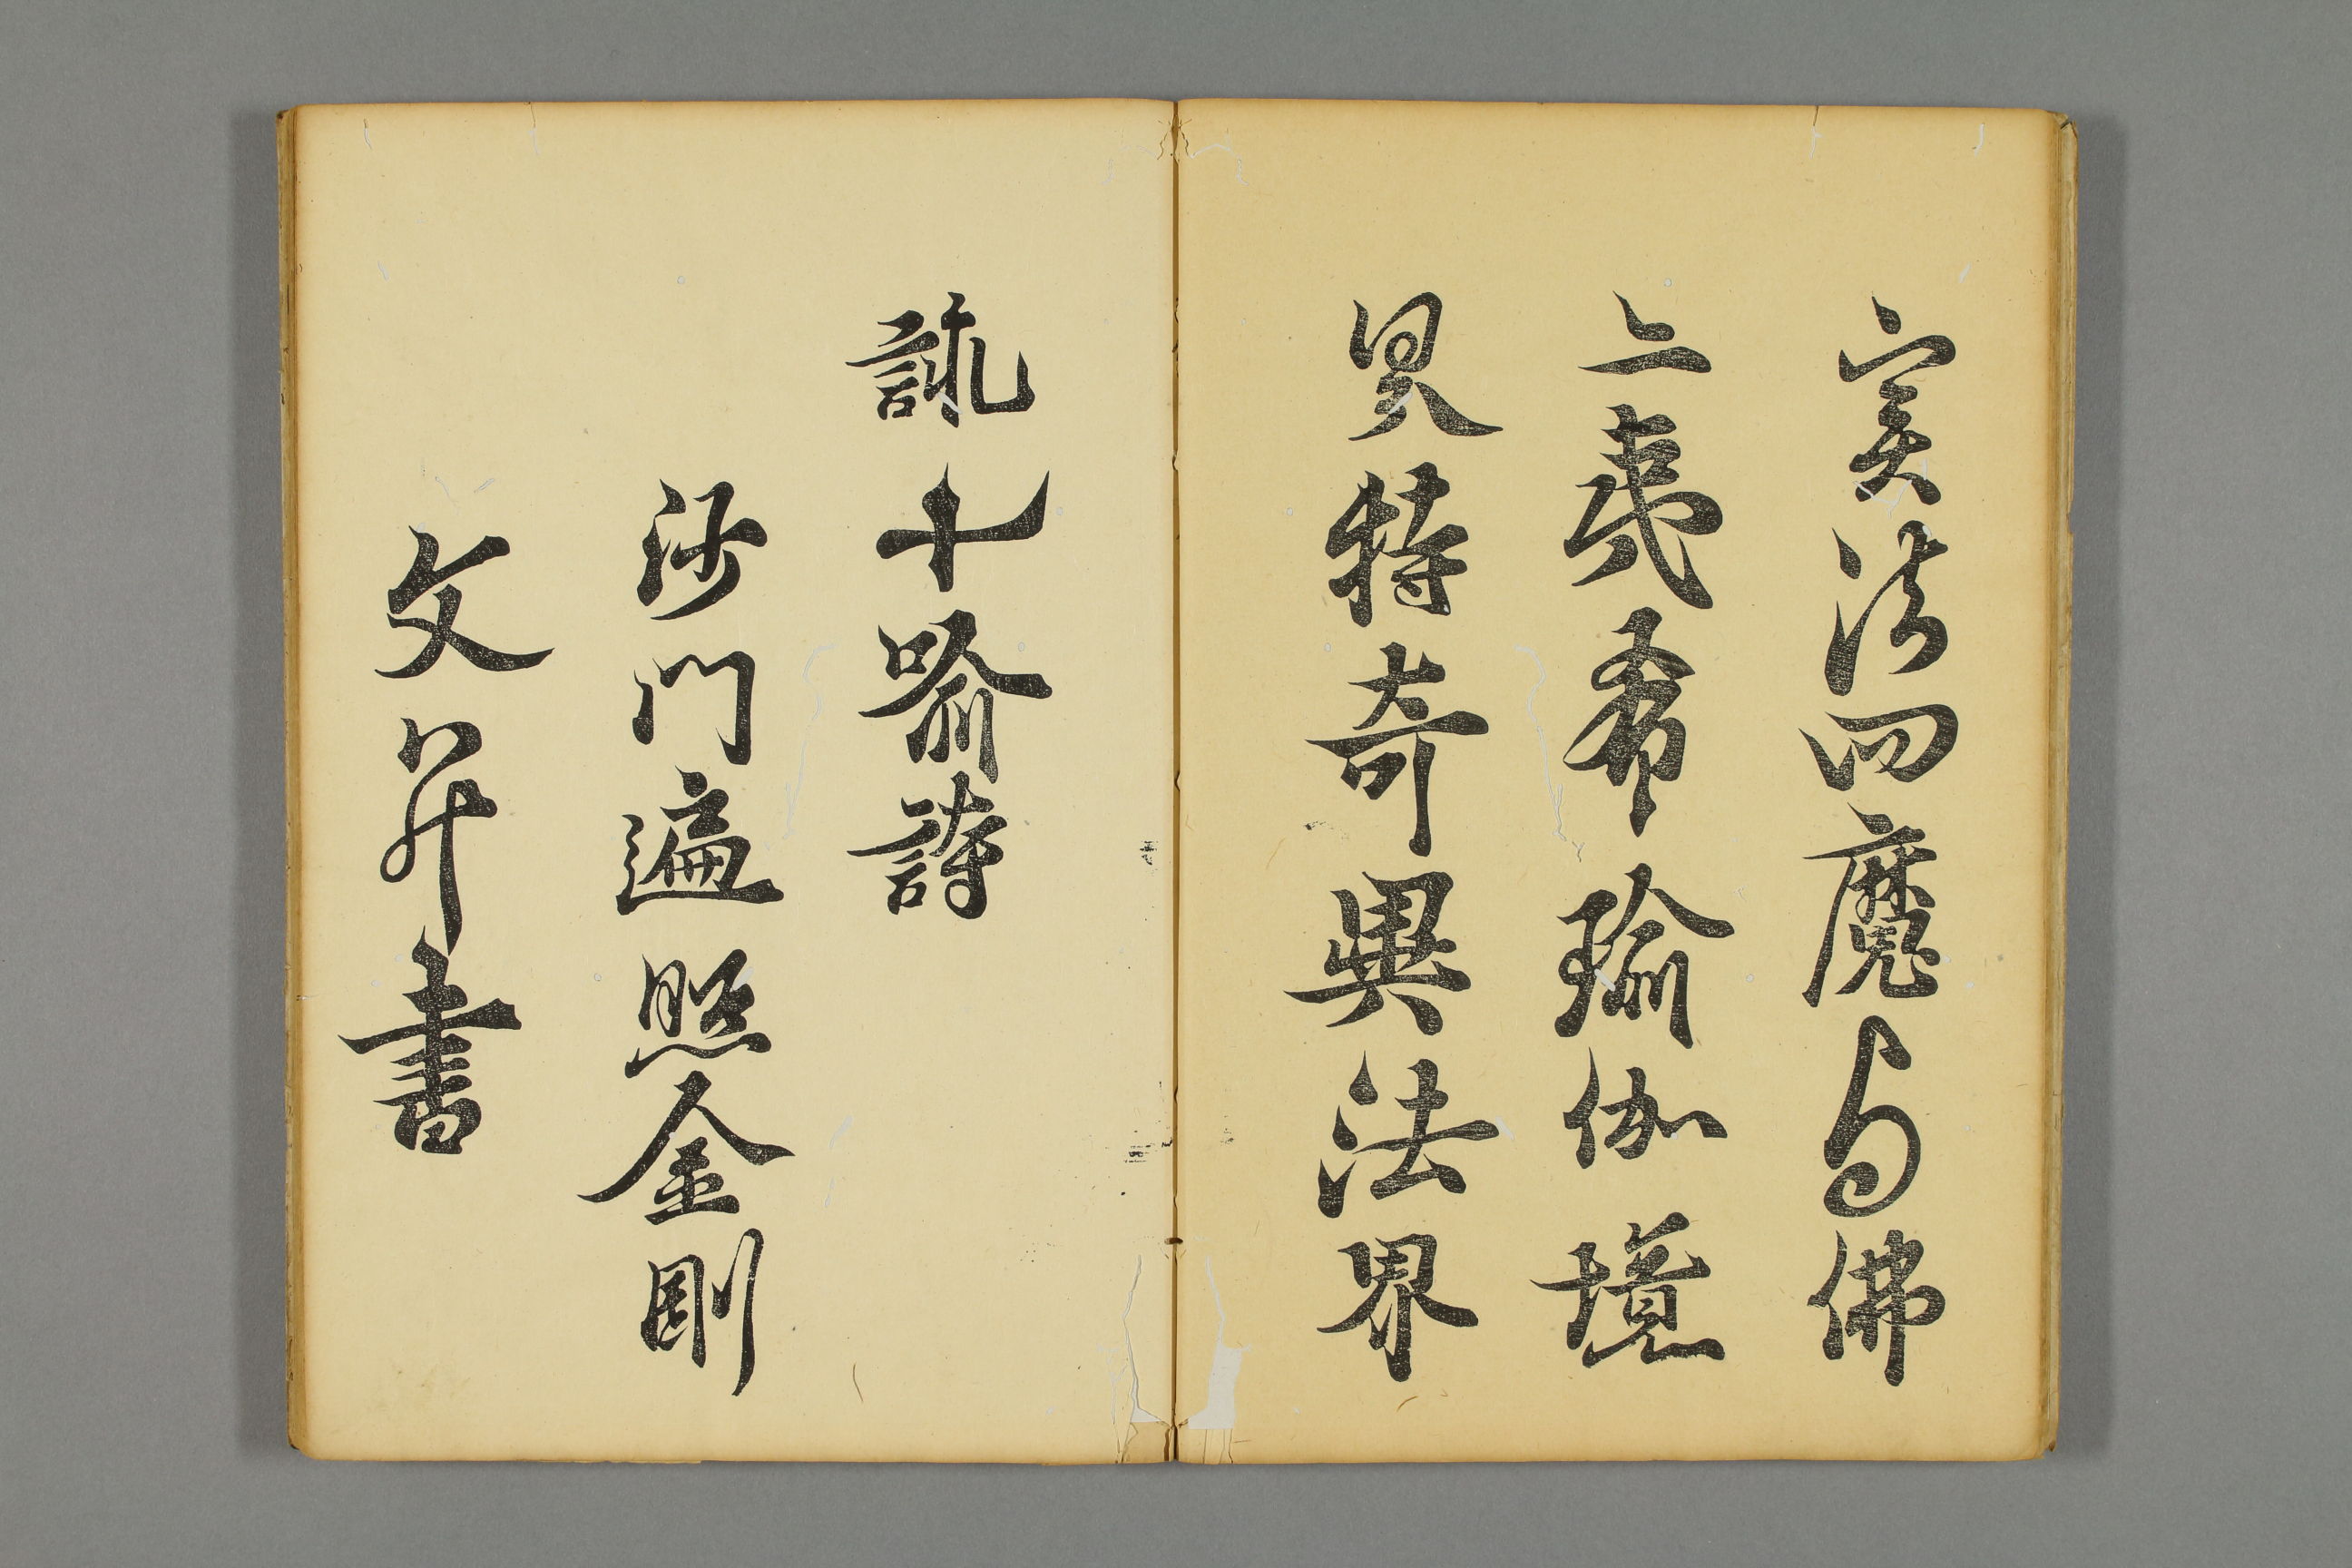 実法四魔与佛
亡夷希瑜伽境
界特奇異法界
詠十喩詩
沙門遍照金剛
文并書